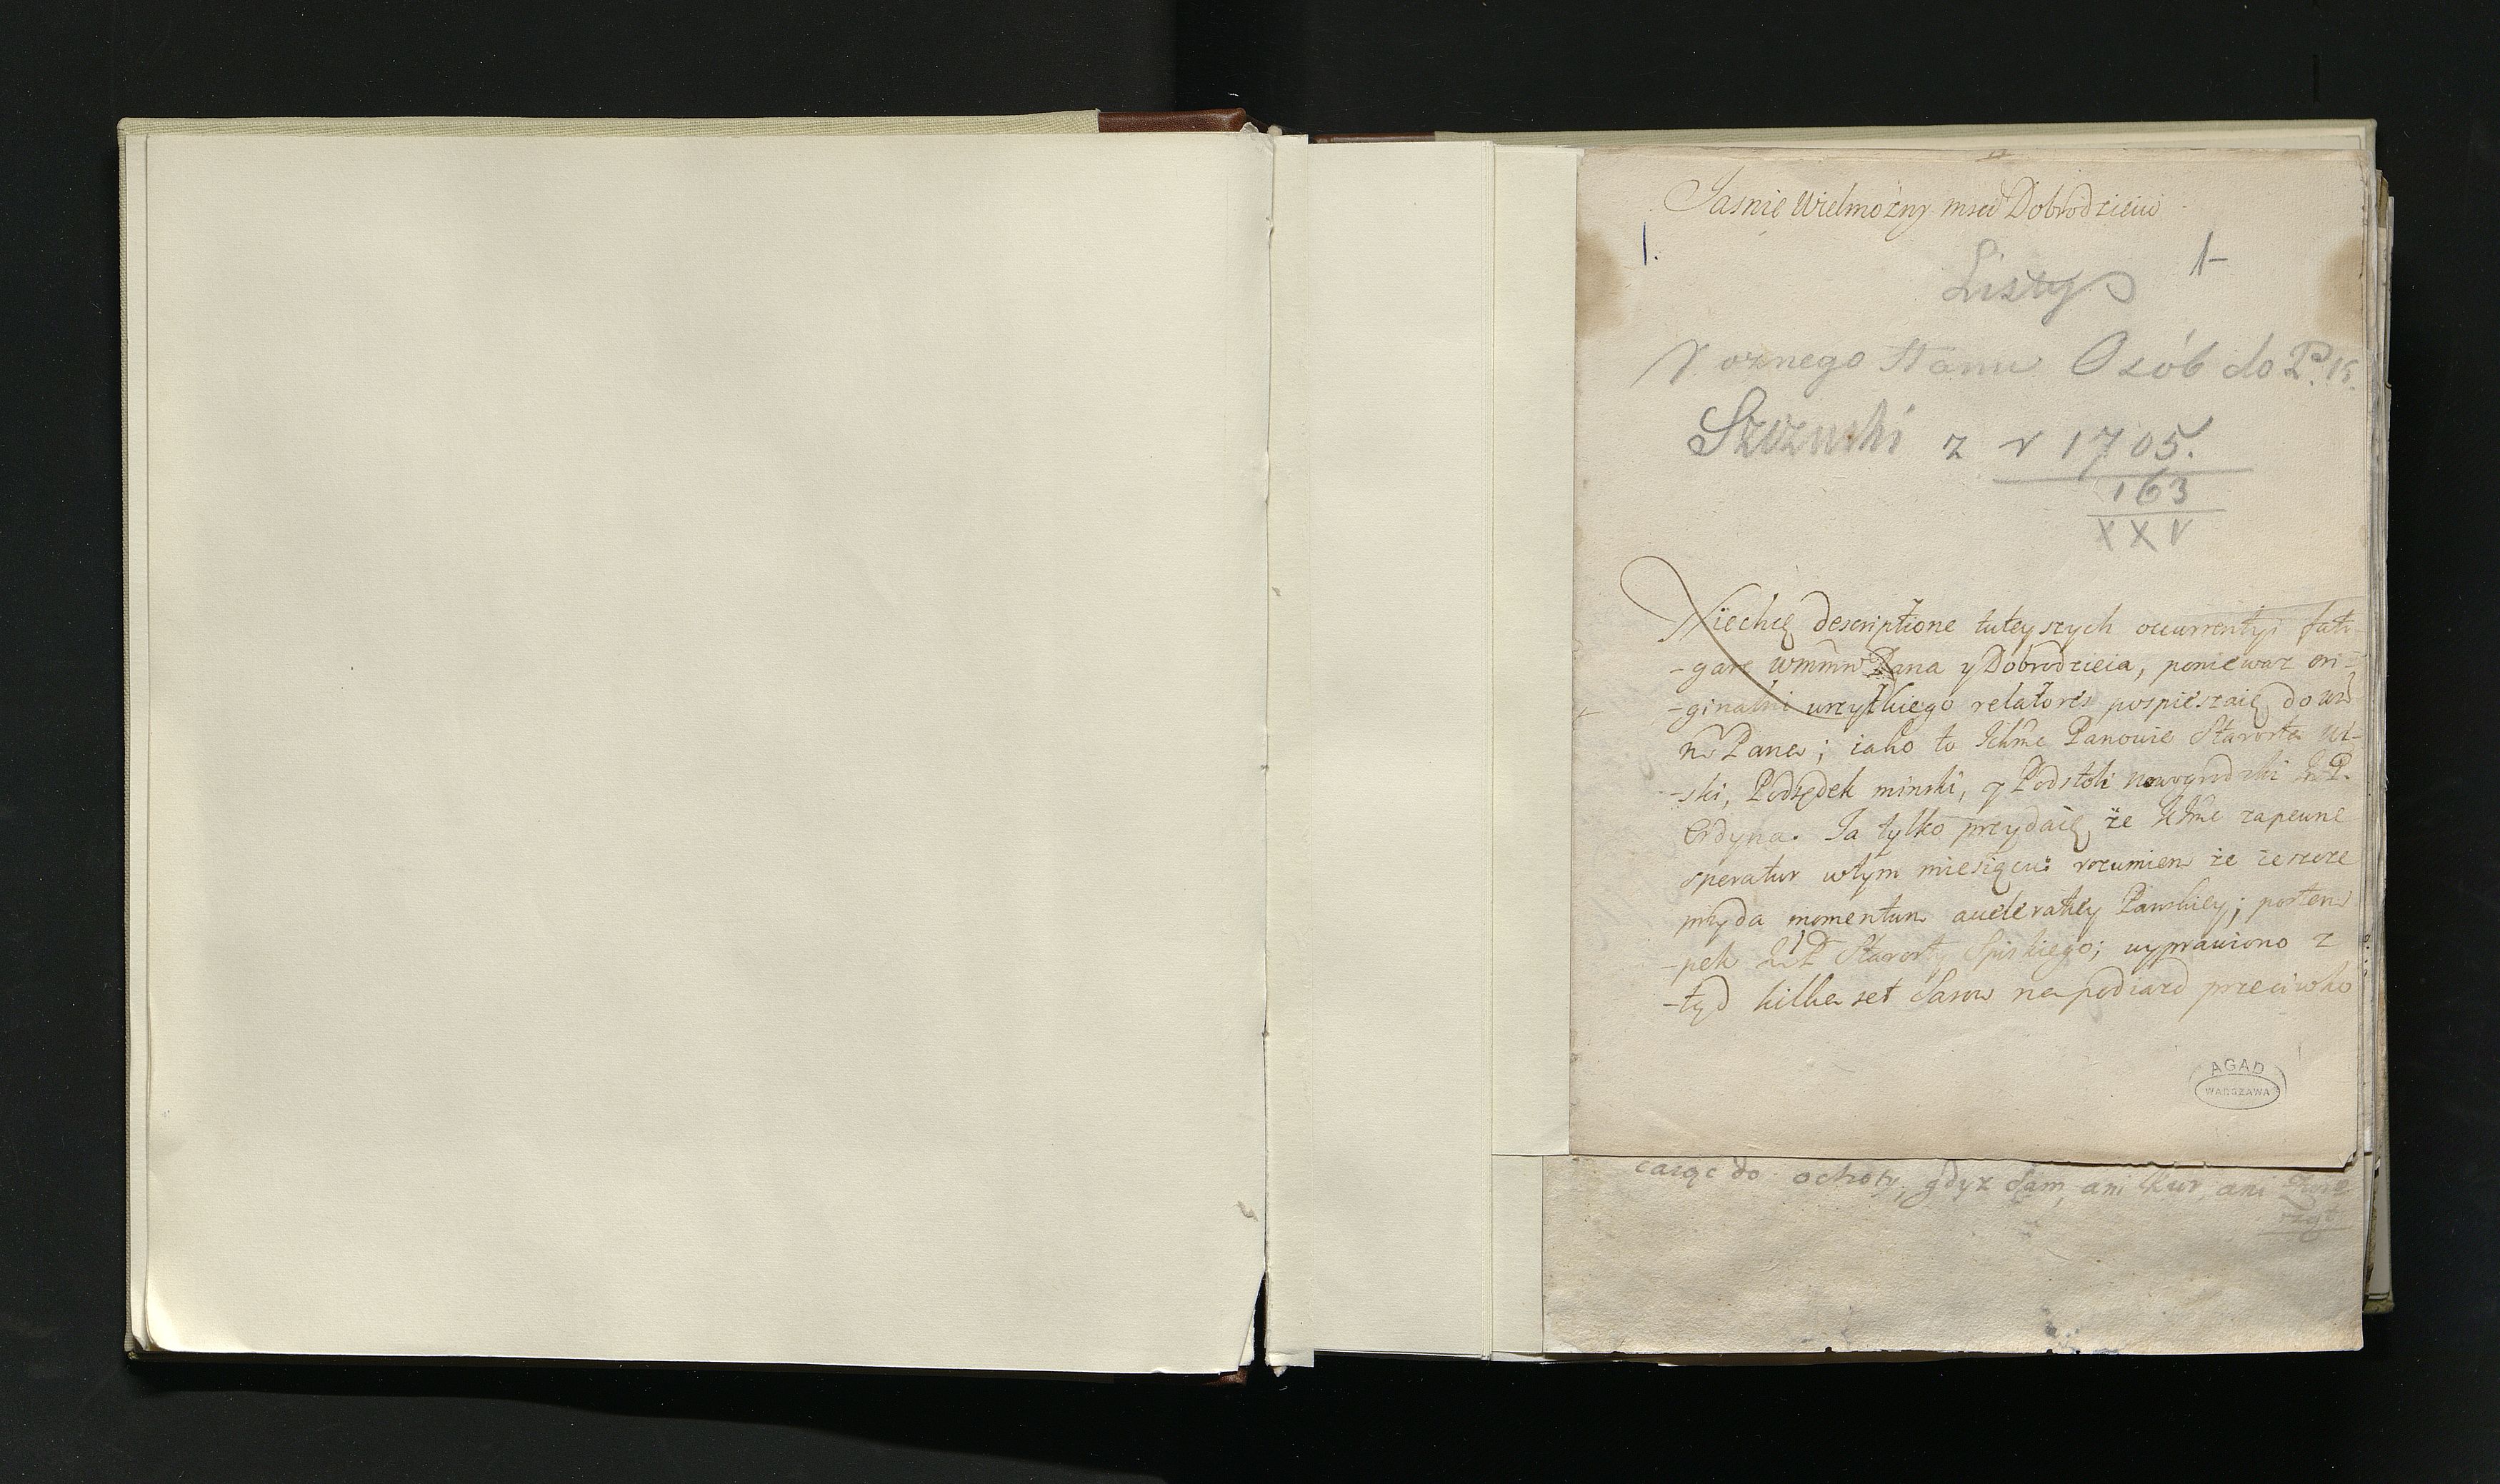 Jasnie Wielmozny msci Dobrodzieiu
1.
1
Listy
Roznego Stanu Osób do P. K.
Szczuski z r 1705.
163
XXV
Niechcę descriptione tuteyszych occurrentyi fati-
-gare wmmw Pana y Dobrodzieia, poniewaz ori-
-ginalni wszytkiego relatores pospieszaią do
Pana; iako to Ichme Panowie Starosta
-ski, Podsędek minski, y Podstoli nowogrodzki
Ordyna. Ja tylko przydaię, ze zapewne
speratur wtym miesiącu: rozumiem ze ieszcze
przyda momentum acceleratiey Panskiey; postem-
-pek Starosty Spiskiego; wyprawiono z
-tąd kilka set Sasow na podiazd przeciwko
AGAD
WARSZAWA
caiąc do ochoty, gdyz Sam, ani Kur, ani